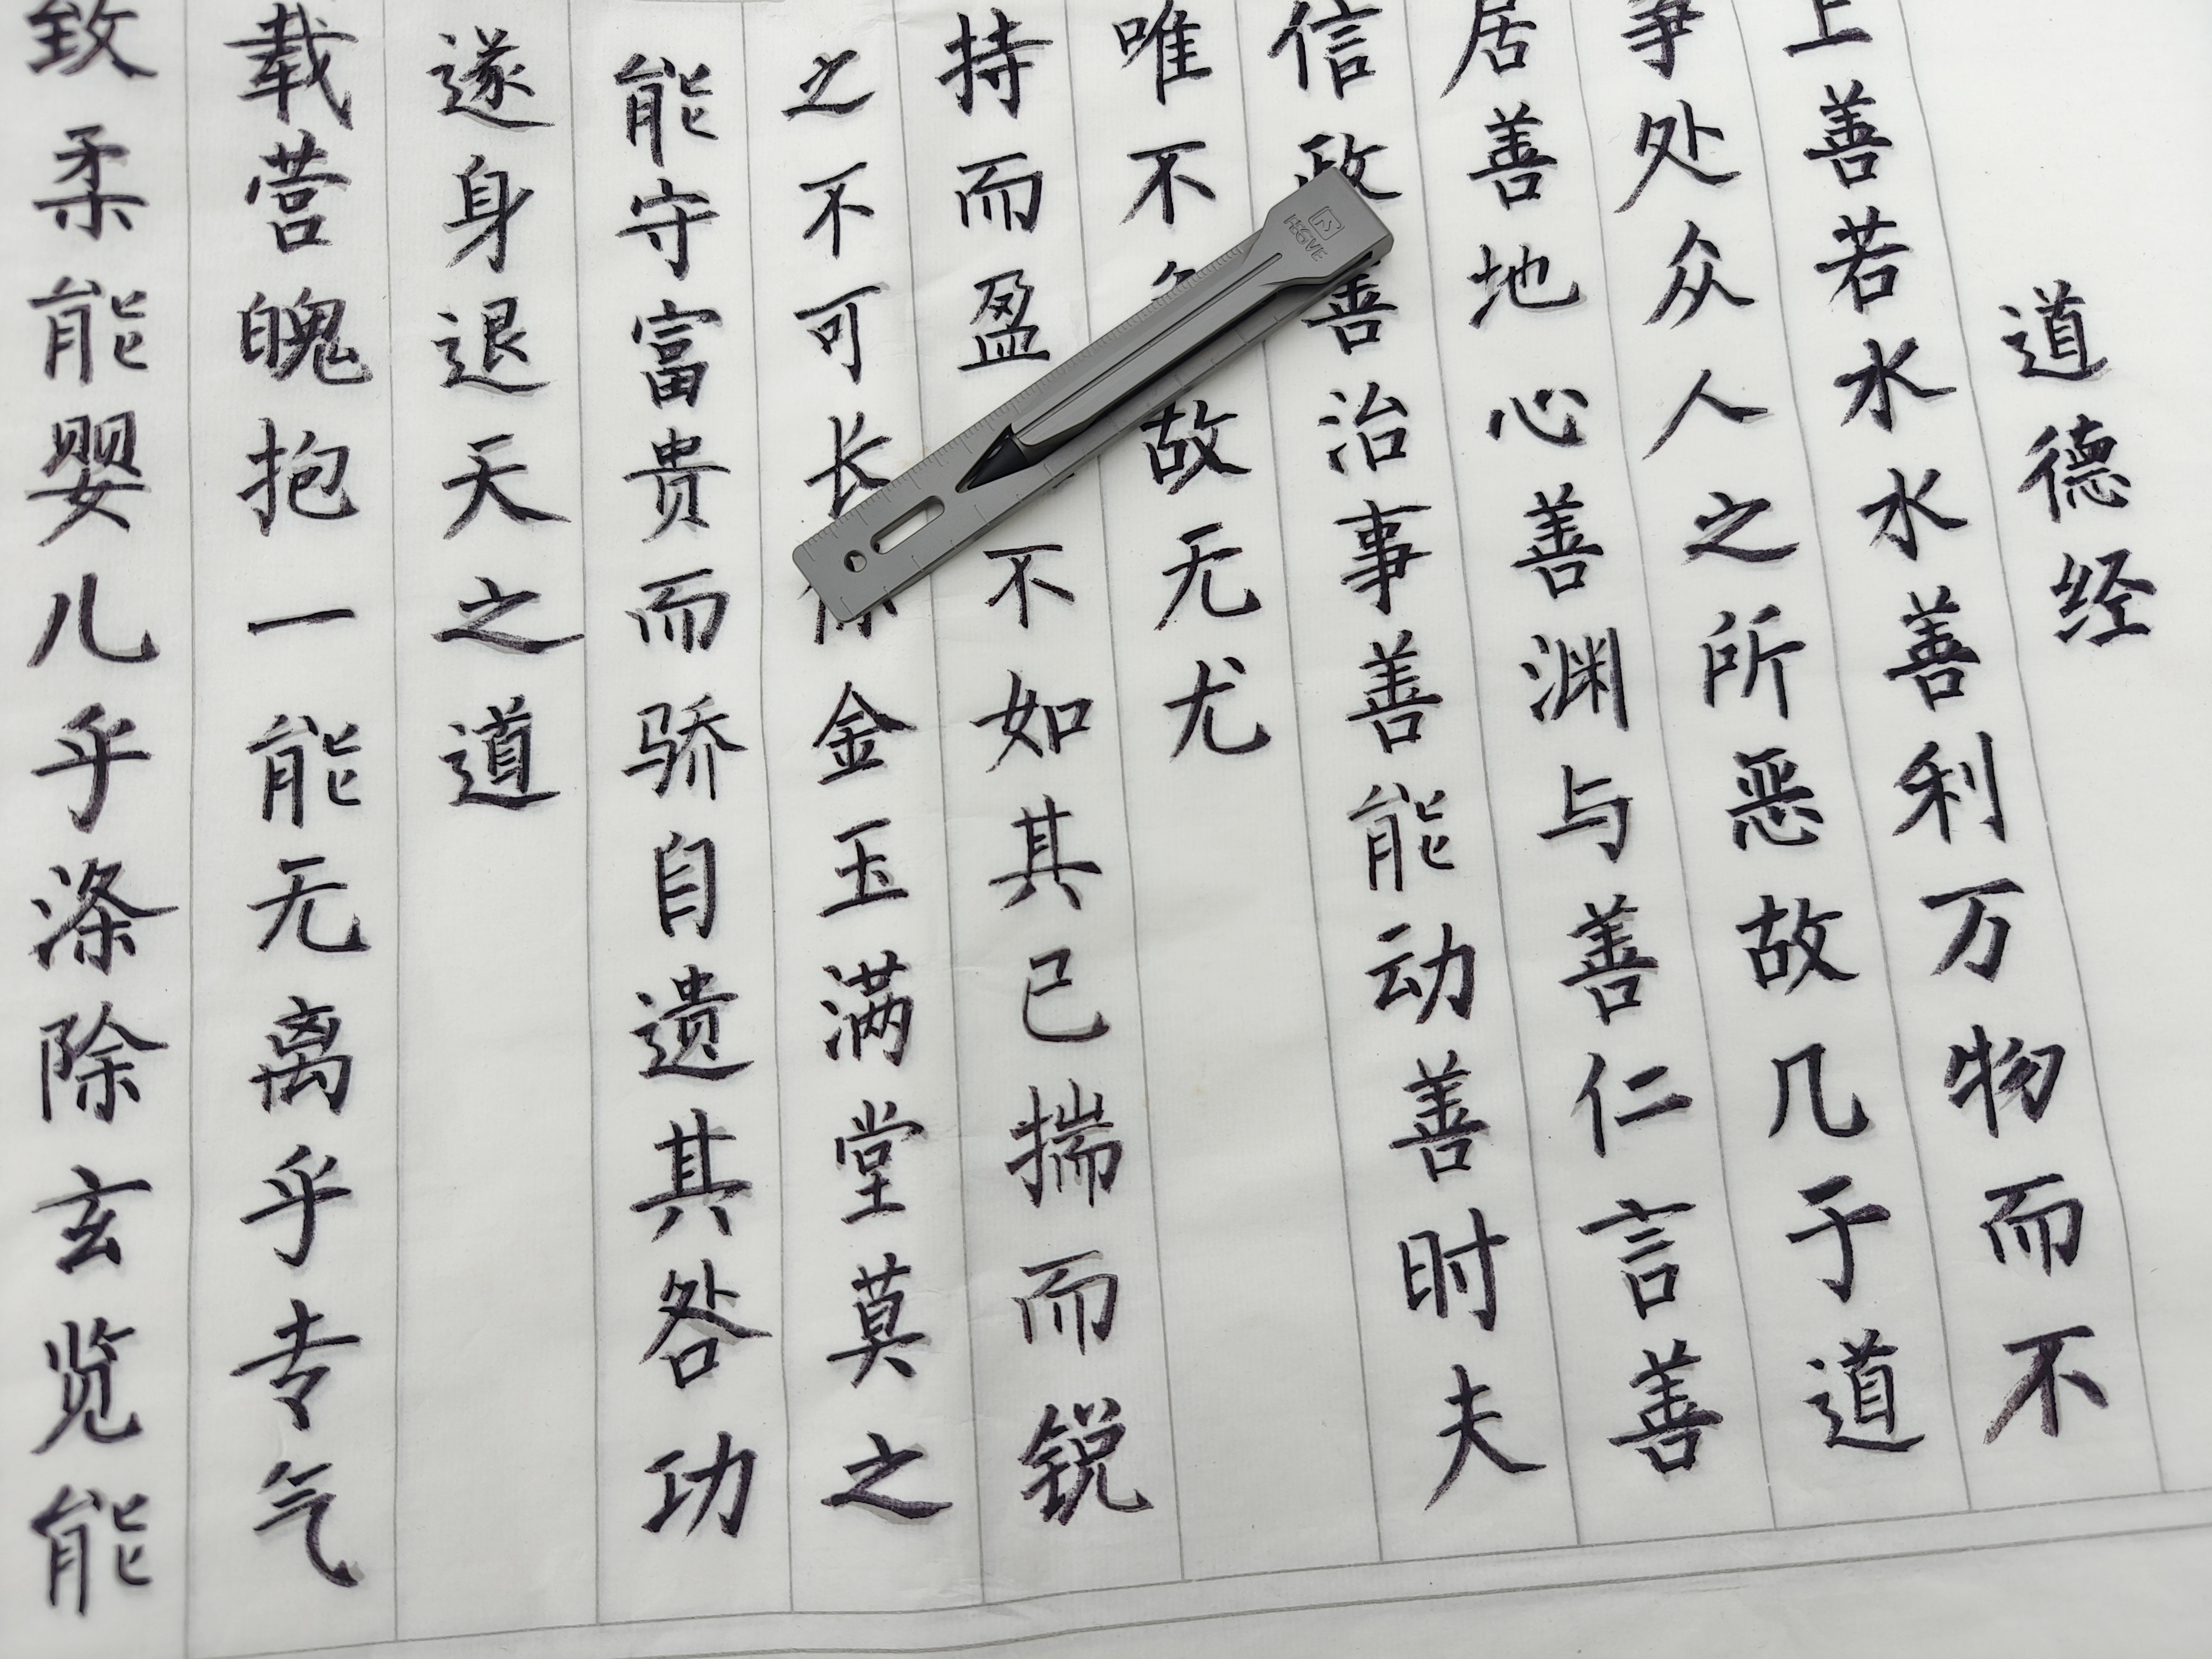 道德经
上善若水水善利万物而不
争处众人之所恶故几于道
居善地心善渊与善仁言善
信政善治事善能动善时夫
唯不故无尤
持而盈不如其已揣而锐
之不可长金玉满堂莫之
能守富贵而骄自遗其咎功
遂身退天之道
载营魄抱一能无离乎专气
致柔能婴儿乎涤除玄览能